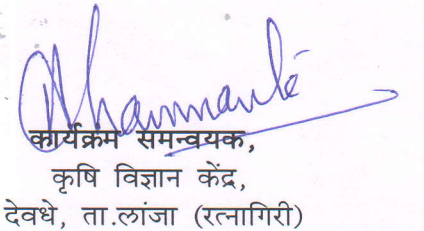 कार्यक्रम समन्वयक,
कृषि विज्ञान केंद्र,
देवधे, ता.लांजा (रत्नागिरी)